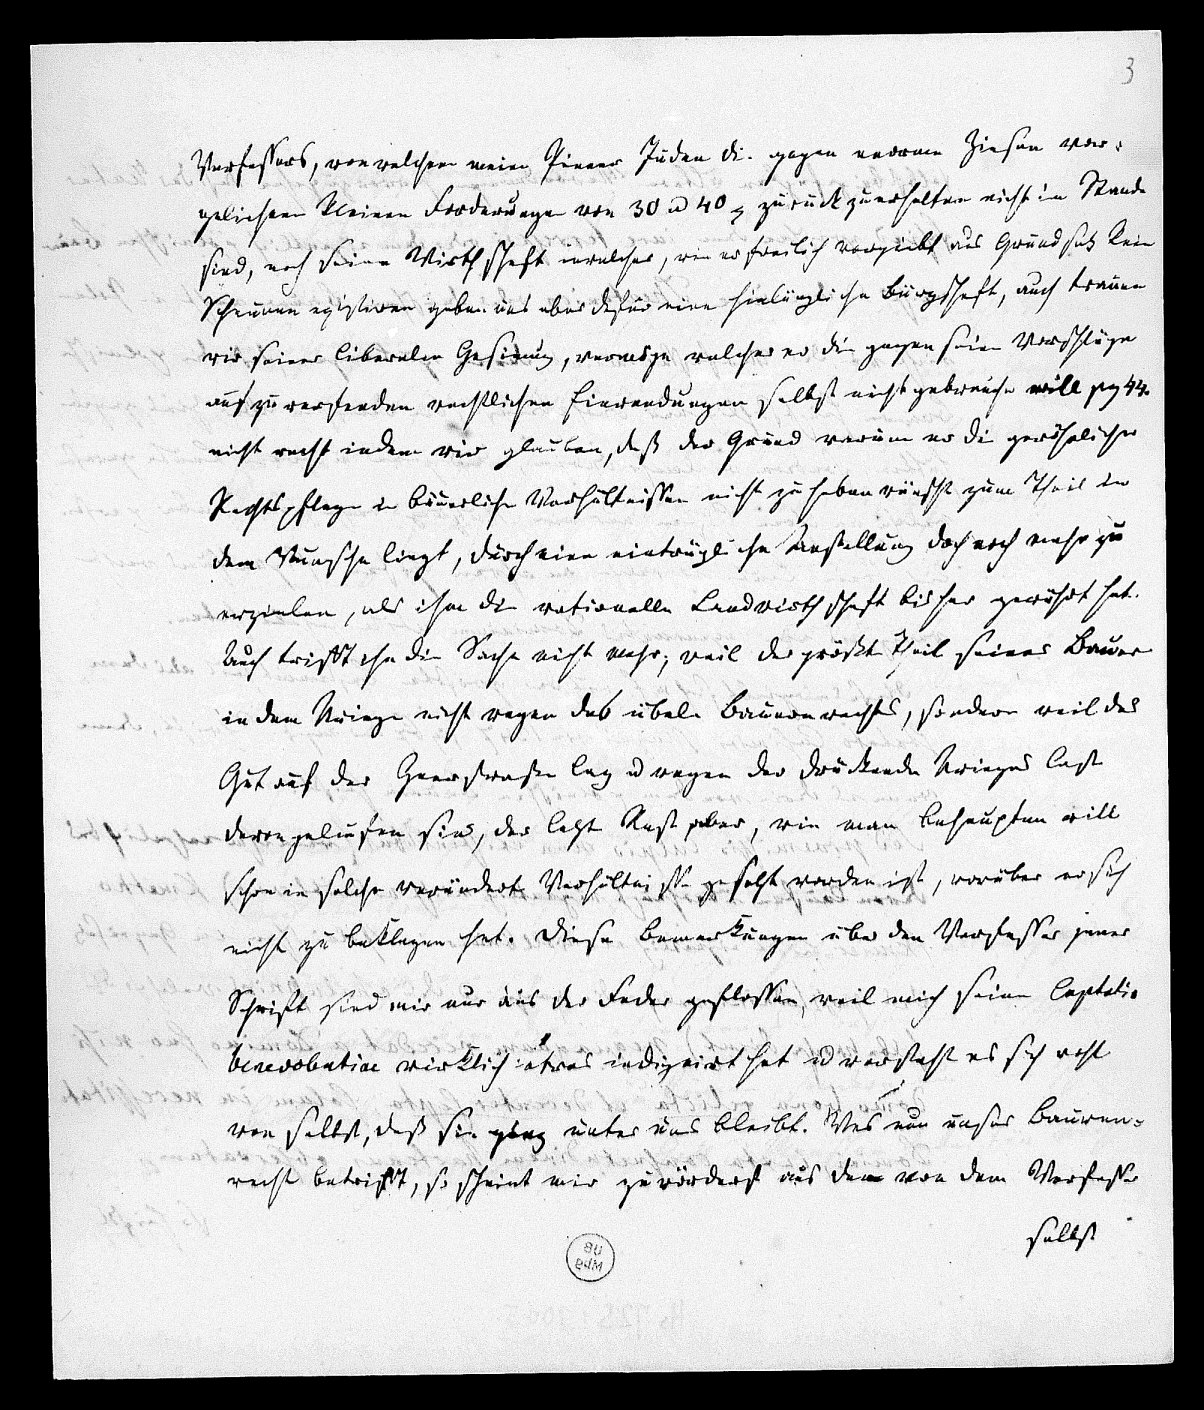 3
Verfassers, von welchem meine Pinner Juden die gegen enorme Zinsen vor-
geliehenen kleinen Forderungen von 30 u 40 zurück zu erhalten nicht im Stande
sind, noch seine Wirthschaft in welcher, wie er freilich vorgiebt aus Grundsatz kein
Scheunen existiren geben uns aber dafür eine hinlängliche Bürgschaft, auch trauen
wir seiner liberalen Gesinnung, vermöge welcher er die gegen seine Vorschläge
aufzuwerfenden rechtlichen Einwendungen selbst nicht gebrauchen will pg 44.
nicht recht indem wir glauben, daß der Grund warum er die gewöhnliche
Rechtspflege in bäuerlichen Verhältnissen nicht zu haben wünscht zum Theil in
dem Wunsche liegt, durch eine einträgliche Anstellung doch noch mehr zu
erzielen, als ihm die rationelle Landwirthschaft bisher gewährt hat.
Auch trifft ihn die Sache nicht mehr, weil der größte Theil seiner Bauern
in dem Kriege nicht wegen des übeln Bauernrechts, sondern weil das
Gut auf der Heerstraße lag u wegen der drückenden Krieges Last
davongelaufen sind, der letzte Rest aber, wie man behaupten will
schon in solche veränderte Verhältnisse gesetzt worden ist, worüber er sich
nicht zu beklagen hat. Diese Bemerkungen über den Verfasser jener
Schrift sind mir nur aus der Feder geflossen, weil mich seine Captatio
benevolentiae wirklich etwas indignirt hat u versteht es sich wohl
von selbst, daß sie ganz unter uns bleibt. Was nun unser Bauern-
recht betrifft, so scheint mir zuvörderst aus dem von dem Verfasser
selbst